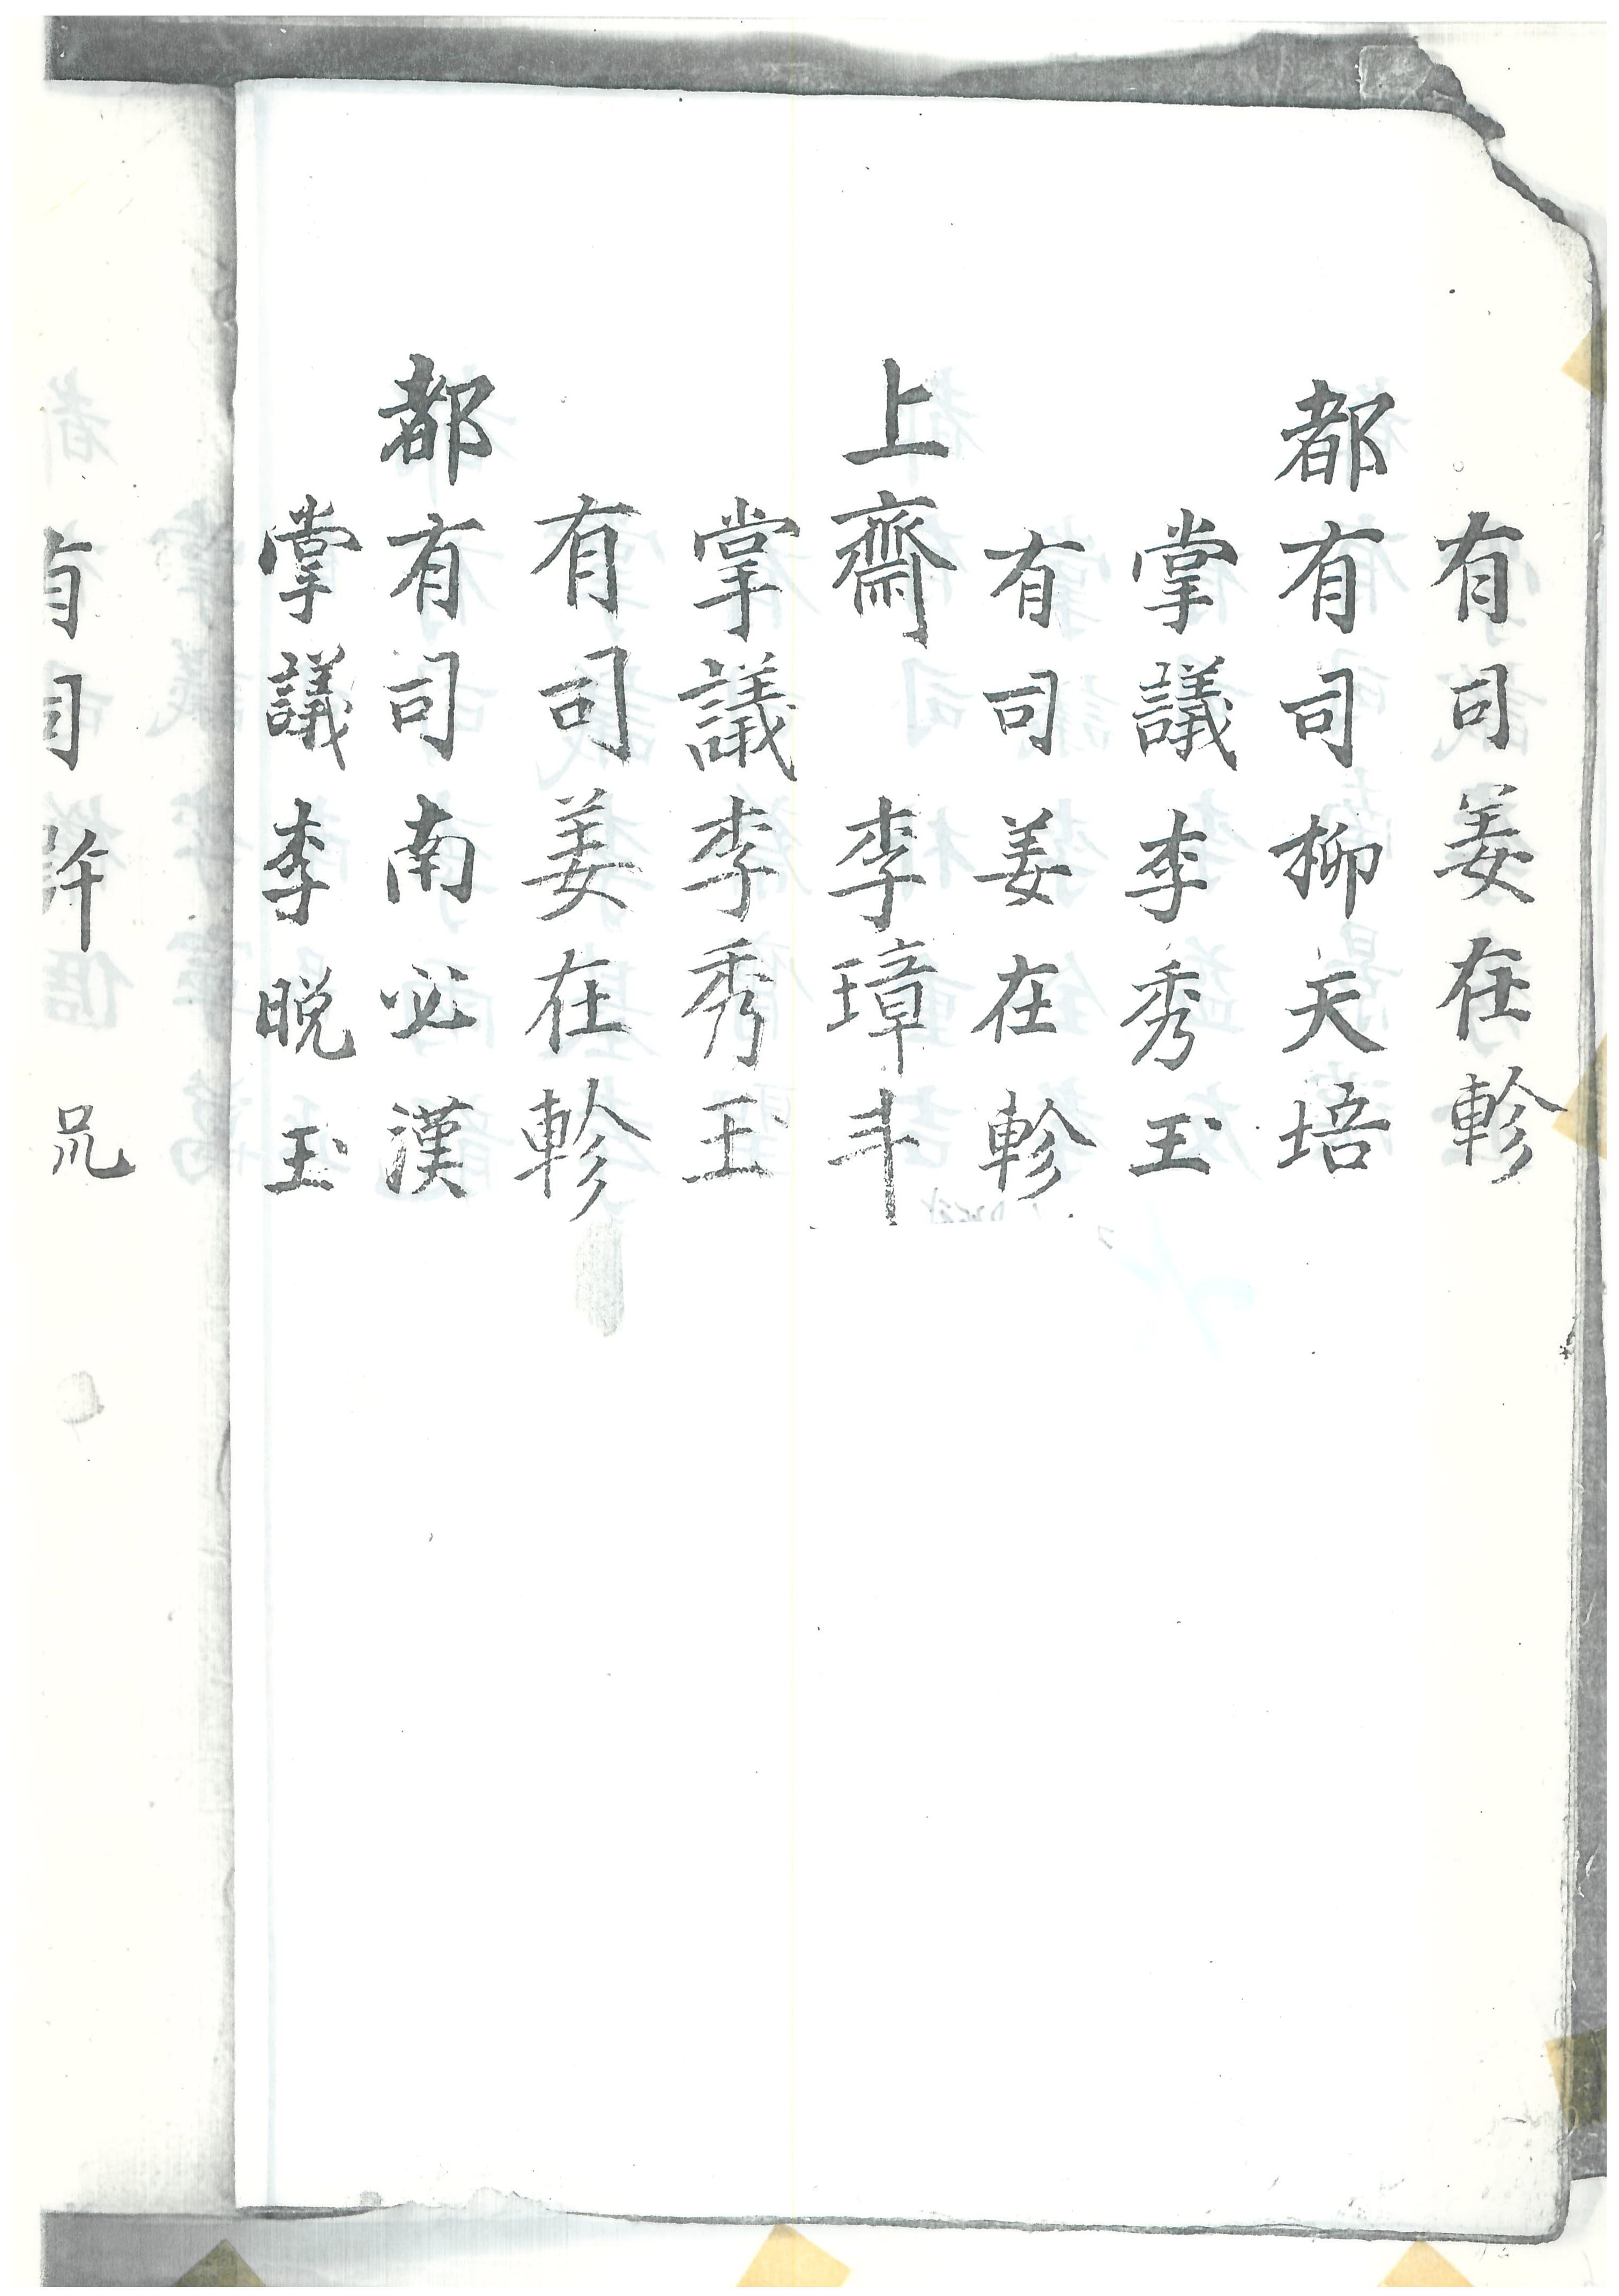 有司姜在軫
都有司柳天培
掌議李秀玉
有司姜在軫
上齋李璋斗
掌議李秀玉
有司姜在軫
都有司南必漢
掌議李晚玉
有司許